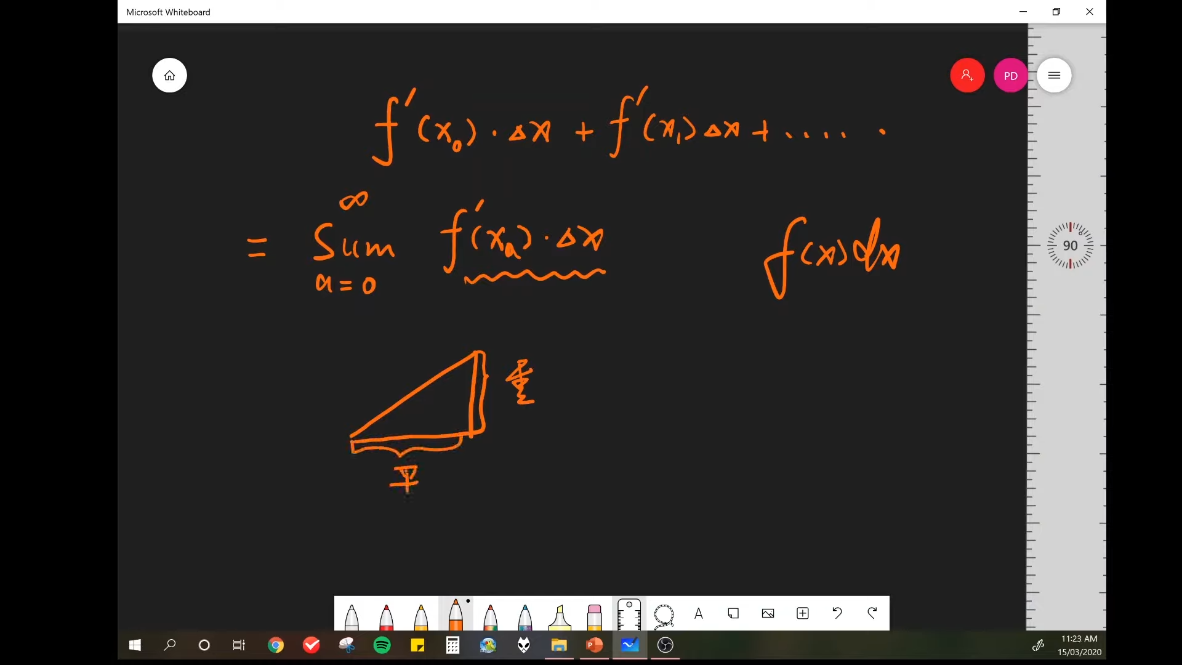 Microsoft Whiteboard
PD
f'(x₀) · Δx + f'(x₁) Δx + ..... .
∞
= Sum f'(xₐ) · Δx f(x)dx
a = 0
90
平
A
11:23 AM
15/03/2020